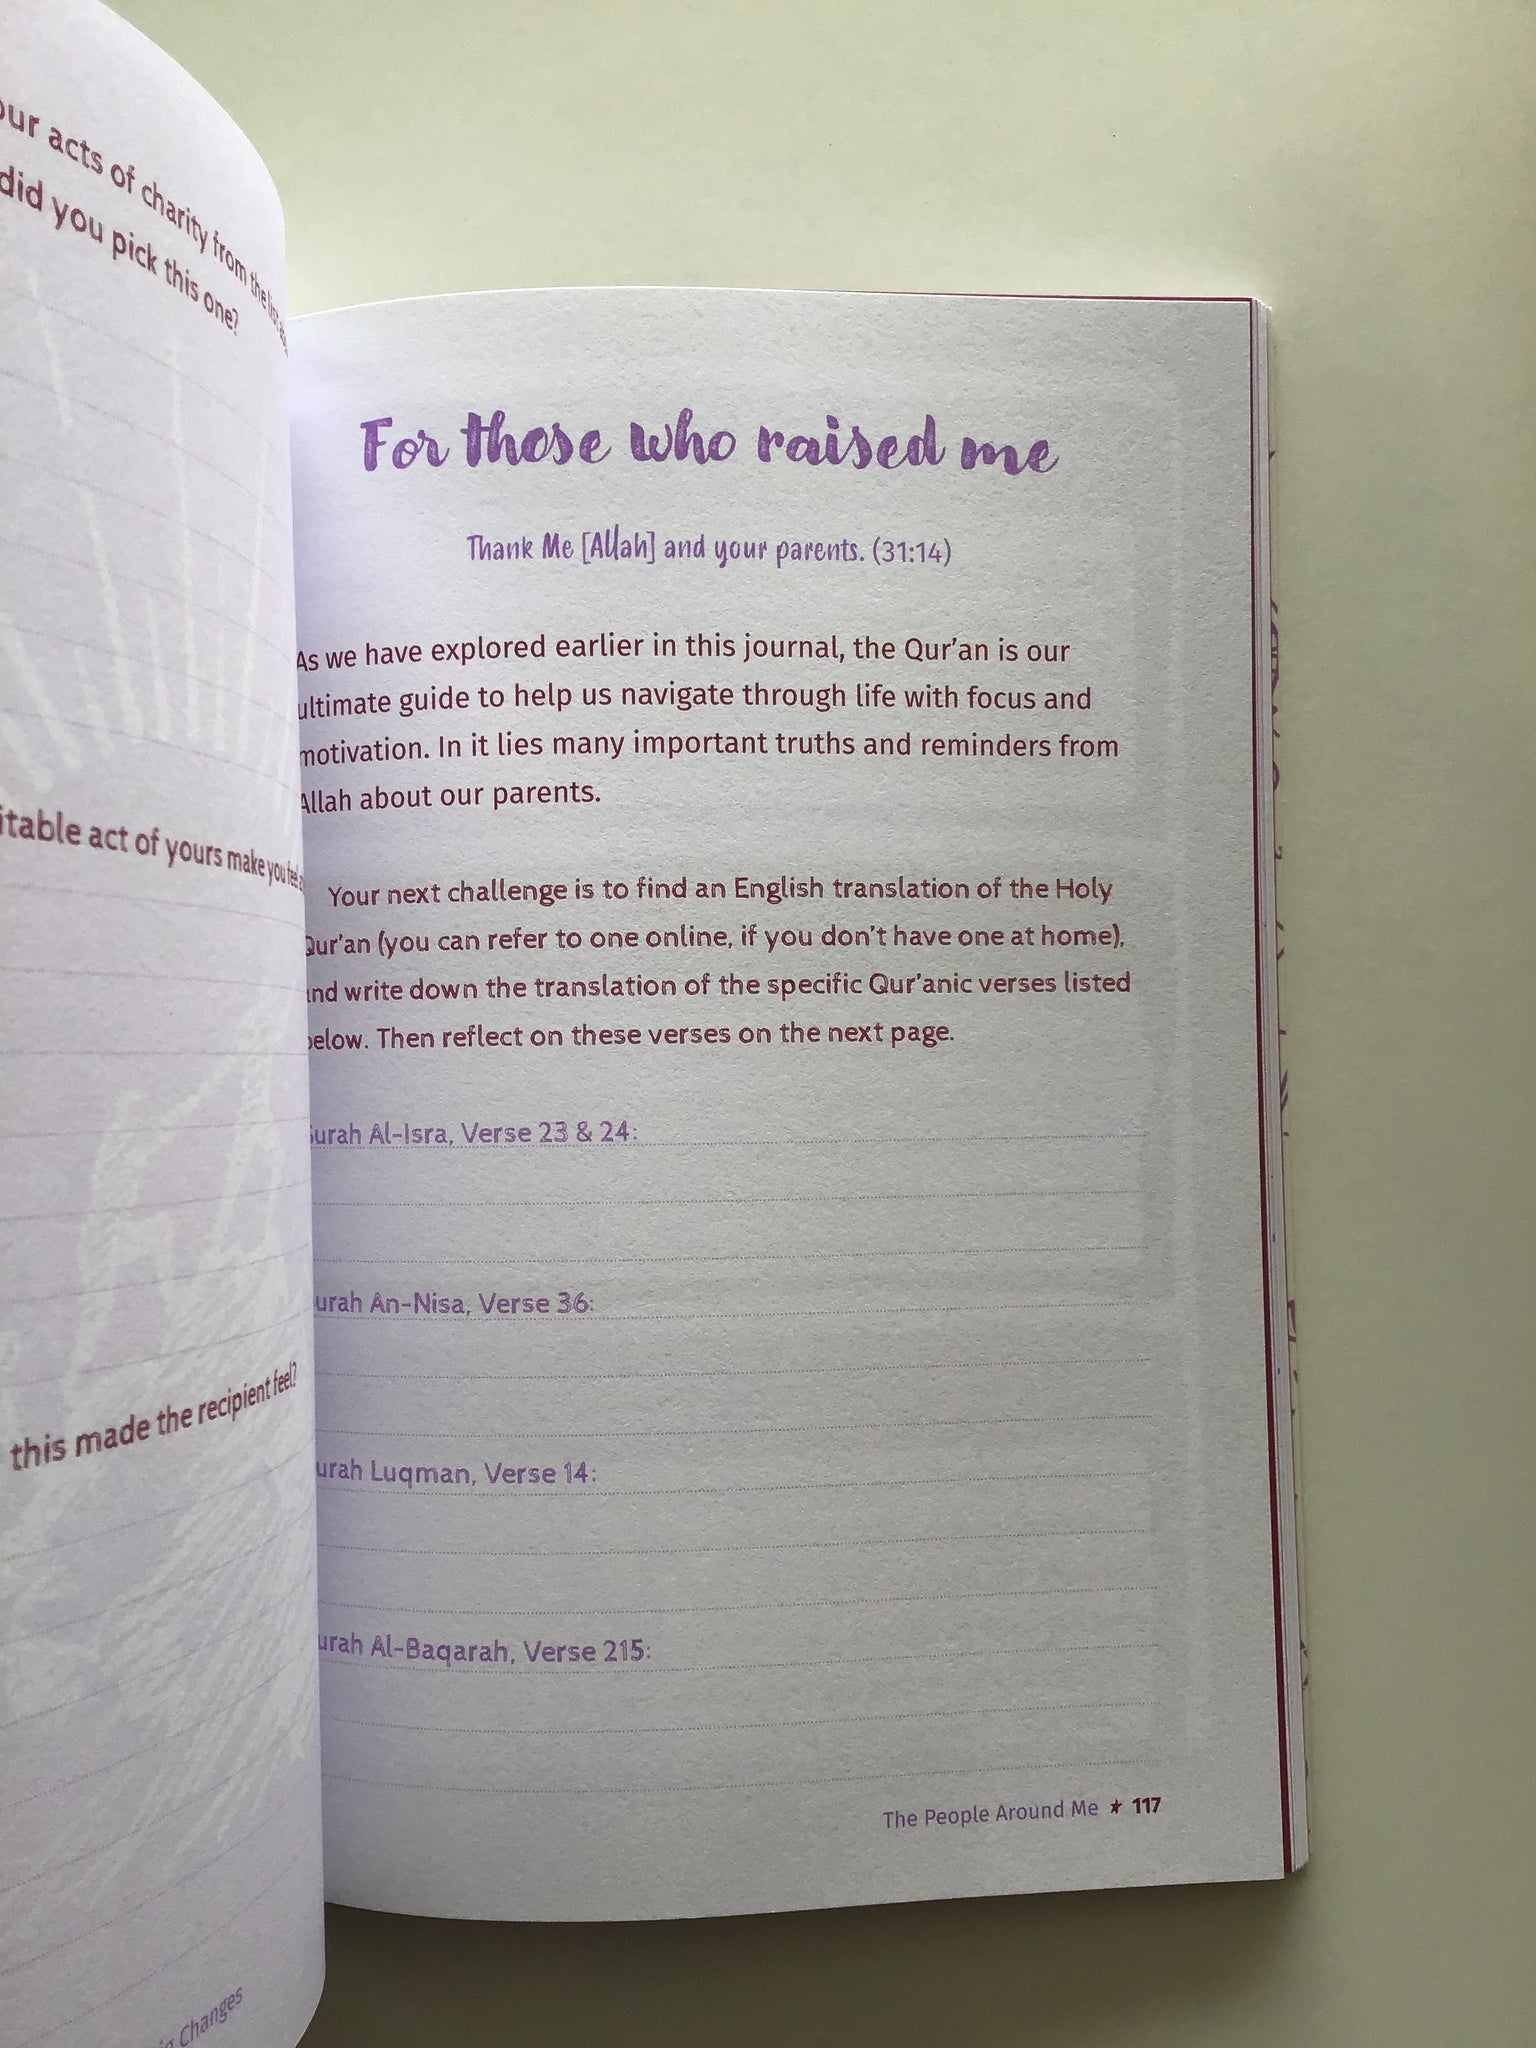 our acts of charity from the list
did you pick this one?
itable act of yours make you feel
this made the recipient feel?
Changes
For those who raised me
Thank Me [Allah] and your parents. (31:14)
As we have explored earlier in this journal, the Qur'an is our
ultimate guide to help us navigate through life with focus and
motivation. In it lies many important truths and reminders from
Allah about our parents.
Your next challenge is to find an English translation of the Holy
Qur'an (you can refer to one online, if you don't have one at home),
and write down the translation of the specific Qur'anic verses listed
below. Then reflect on these verses on the next page.
Surah Al-Isra, Verse 23 & 24:
urah An-Nisa, Verse 36:
urah Luqman, Verse 14:
urah Al-Baqarah, Verse 215:
The People Around Me ★ 117